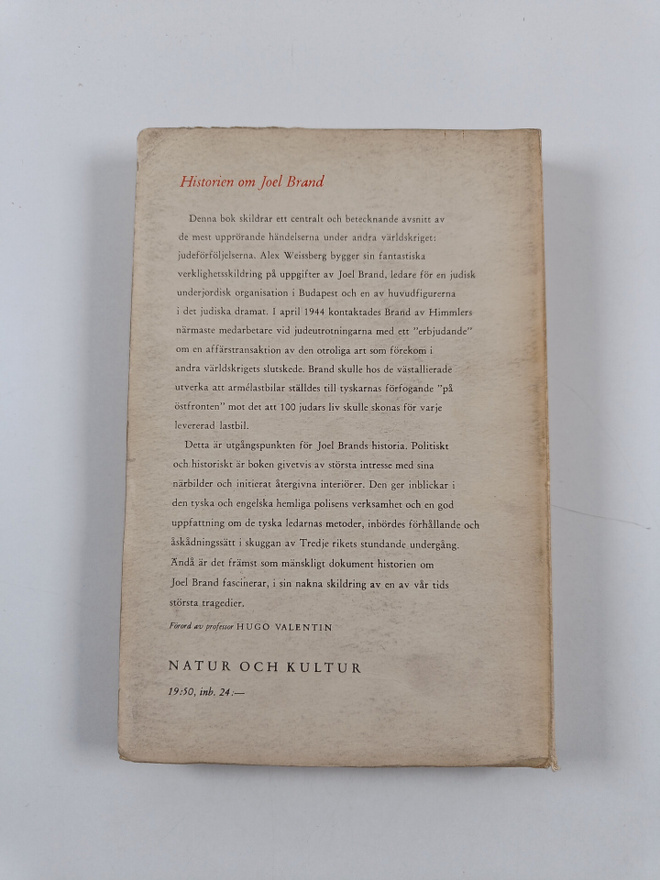 Historien om Joel Brand
Denna bok skildrar ett centralt och betecknande avsnitt av
de mest upprörande händelserna under andra världskriget:
judeförföljelserna. Alex Weissberg bygger sin fantastiska
verklighetsskildring på uppgifter av Joel Brand, ledare för en judisk
underjordisk organisation i Budapest och en av huvudfigurerna
i det judiska dramat. I april 1944 kontaktades Brand av Himmlers
närmaste medarbetare vid judeutrotningarna med ett "erbjudande"
om en affärstransaktion av den otroliga art som förekom i
andra världskrigets slutskede. Brand skulle hos de västallierade
utverka att armélastbilar ställdes till tyskarnas förfogande "på
östfronten" mot det att 100 judars liv skulle skonas för varje
levererad lastbil.
Detta är utgångspunkten för Joel Brands historia. Politiskt
och historiskt är boken givetvis av största intresse med sina
närbilder och initierat återgivna interiörer. Den ger inblickar i
den tyska och engelska hemliga polisens verksamhet och en god
uppfattning om de tyska ledarnas metoder, inbördes förhållande och
åskådningssätt i skuggan av Tredje rikets stundande undergång.
Ändå är det främst som mänskligt dokument historien om
Joel Brand fascinerar, i sin nakna skildring av en av vår tids
största tragedier.
Förord av professor HUGO VALENTIN
NATUR OCH KULTUR
19:50, inb. 24:—